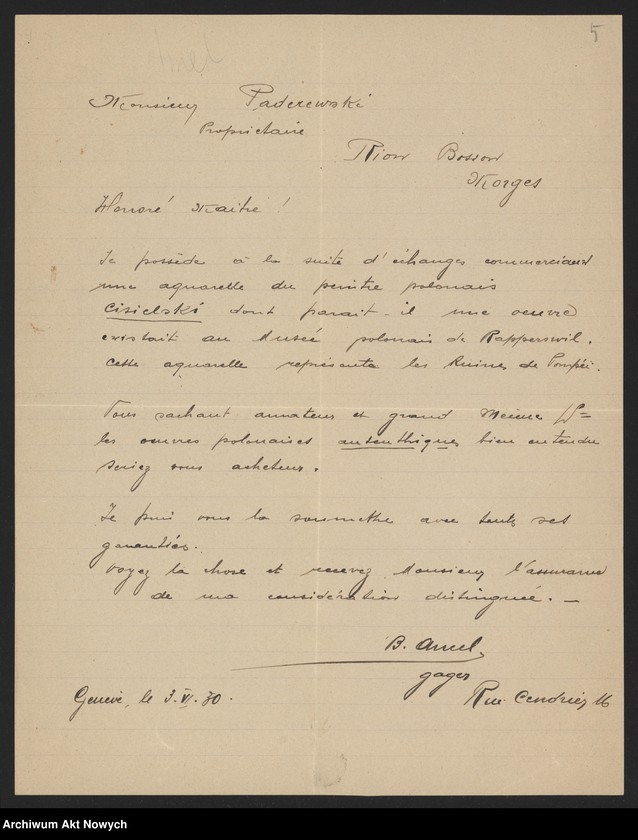 5
Amel
Monsieur Paderewski
Propriétaire
Rion Bosson
Morges
Honoré Maitre !
Je possède à la suite d'échanges commerciaux
une aquarelle du peintre polonais
Cisielski dont parait-il une oeuvre
existait au Museé polonais de Rapperswil.
Cette aquarelle représente les Ruines de Pompéi.
Vous sachant amateur et grand
les oeuvres polonaises autenthiques bien entendu
seriez vous acheteur.
Je puis vous la soumettre avec toute ses
garanties.
Voyez la chose et recevez Monsieur l'assurance
de ma considération distinguée. —
B. Amel
gages
Genève, le 3.VI.30.
Rue Cendrier 16
Archiwum Akt Nowych